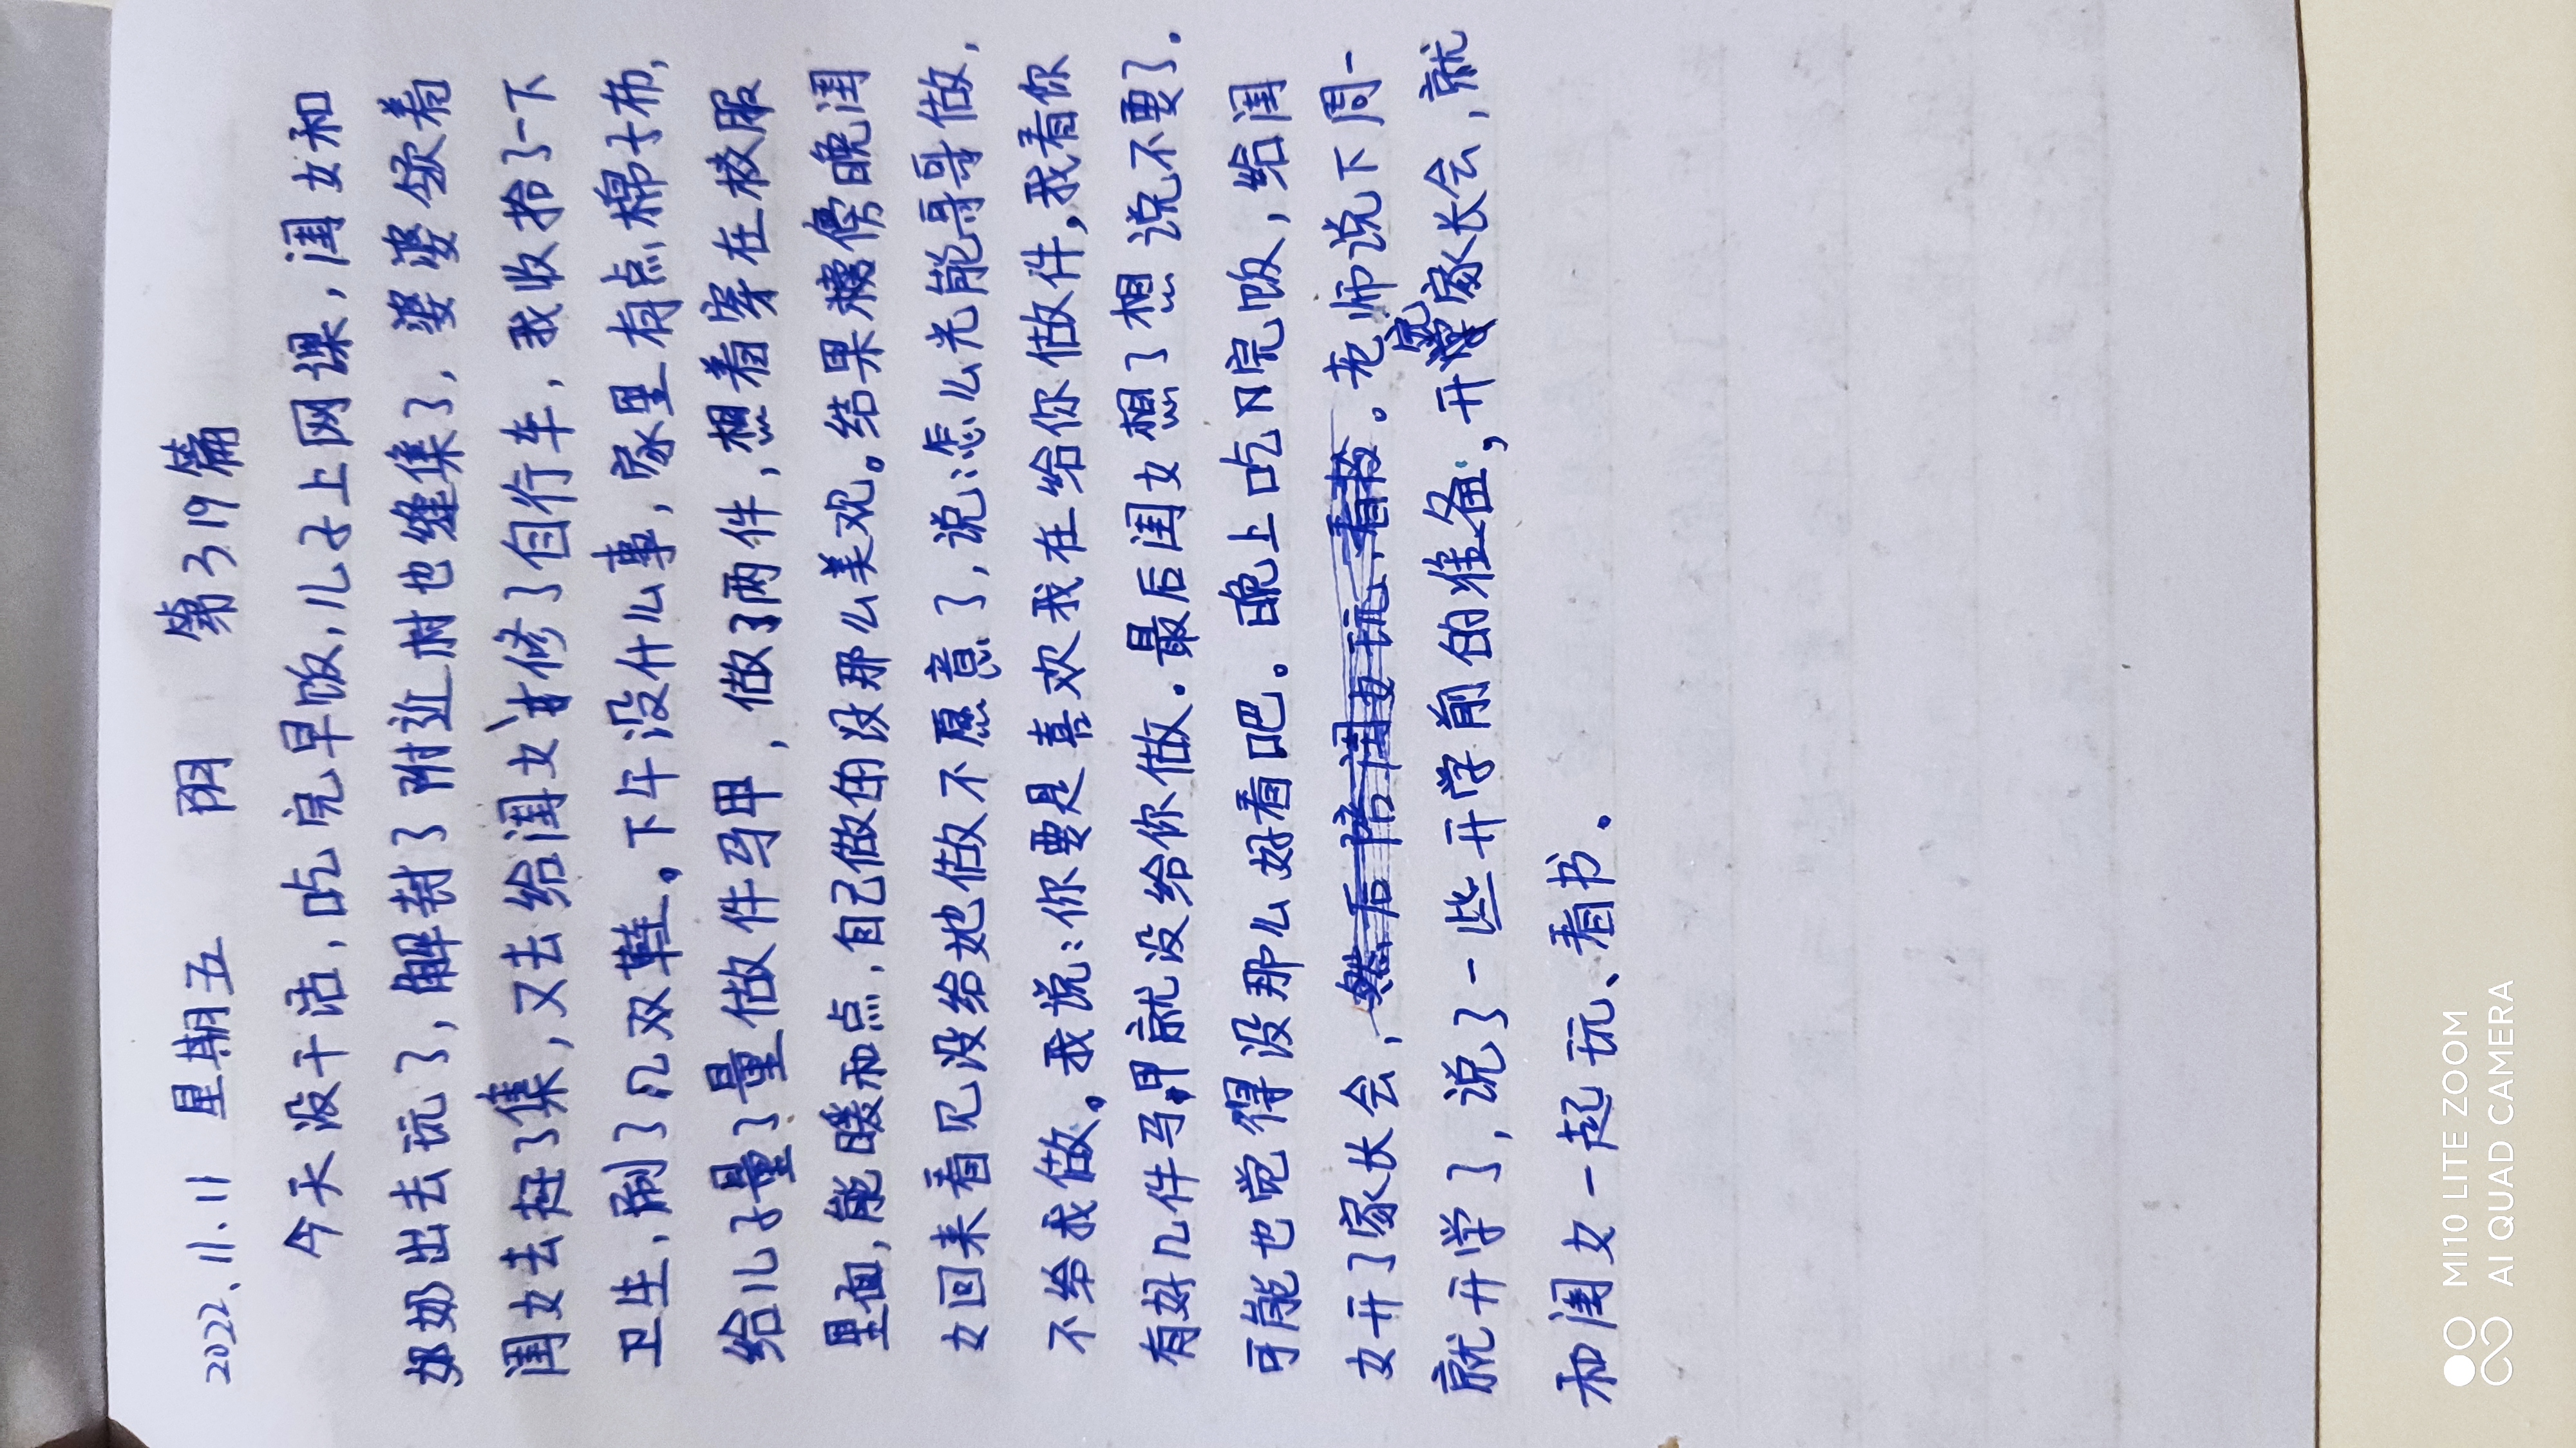 2022、11.11 星期五 阴 第319篇
今天没干活，吃完早饭，儿子上网课，闺女和
奶奶出去玩了，解封了附近村也逢集了，婆婆领着
闺女去赶了集，又去给闺女修了自行车，我收拾了一下
卫生，刷了几双鞋。下午没什么事，家里有点棉子布，
给儿子量了量做件马甲，做了两件，想着穿在校服
里面，能暖和点，自己做的没那么美观。结果傍晚闺
女回来看见没给她做不愿意了，说：怎么光能哥哥做，
不给我做。我说：你要是喜欢我在给你做件，我看你
有好几件马甲就没给你做。最后闺女想了想说不要了.
可能也觉得没那么好看吧。晚上吃完饭，给闺
女开了家长会，。老师说下周一
就开学了，说了一些开学前的准备，开完家长会，就
和闺女一起玩、看书。
MI10 LITE ZOOM
AI QUAD CAMERA